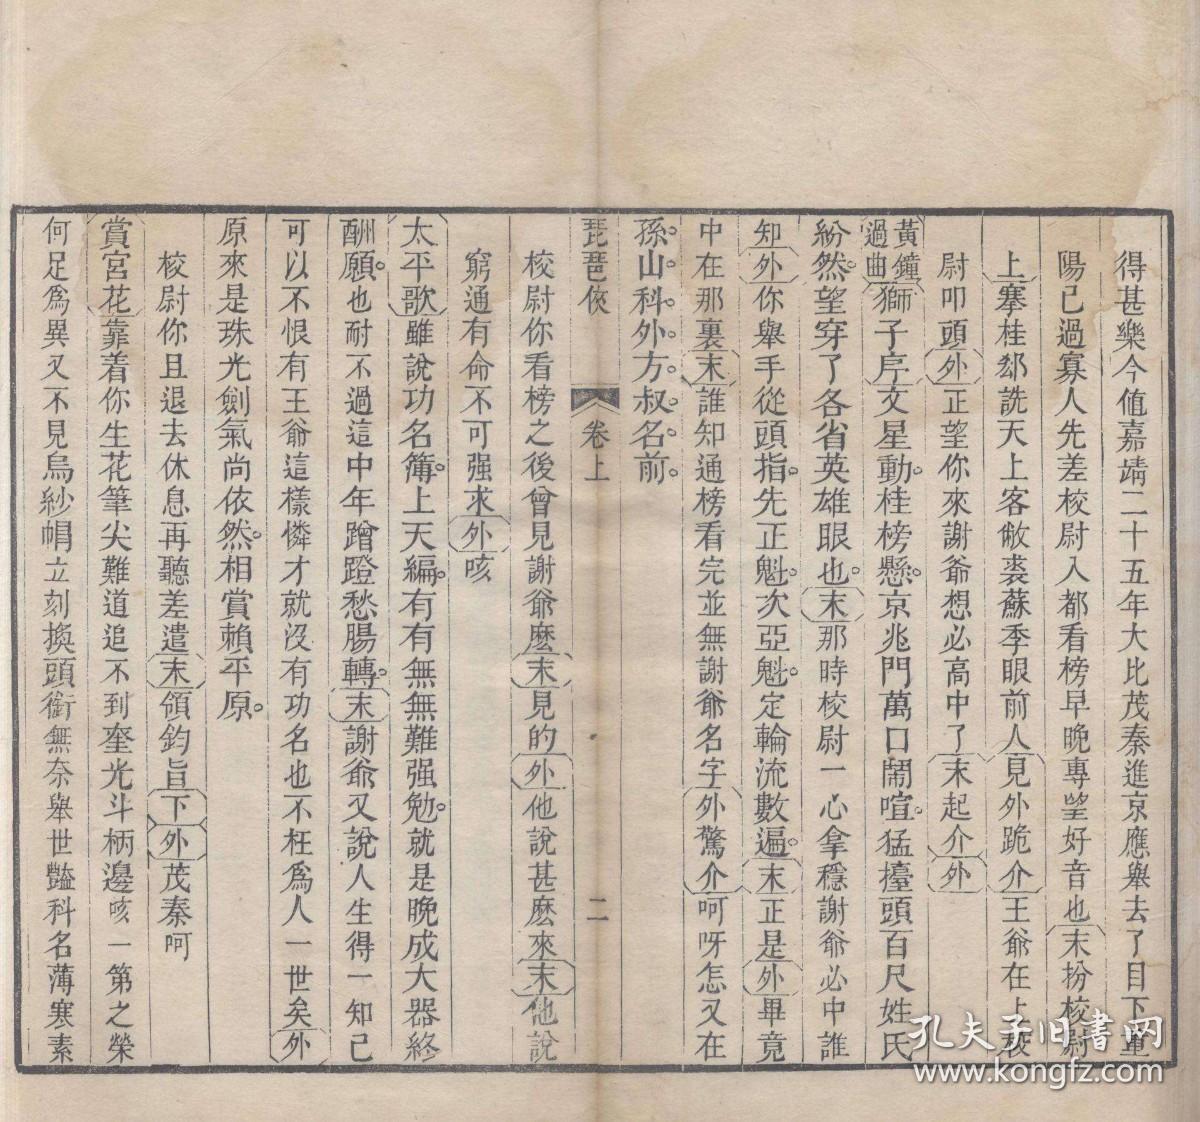 得甚樂今値嘉靖二十五年大比茂秦進京應舉去了目下重
陽已過寡人先差校尉入都看榜早晚專望好音也末扮校尉
上搴桂郄詵天上客敝裘蘇季眼前人見外跪介王爺在上校
尉叩頭外正望你來謝爺想必高中了末起介外
黃鐘過曲獅子序文星動桂榜懸京兆門萬口鬧喧猛擡頭百尺姓氏
紛然望穿了各省英雄眼也末那時校尉一心拿穩謝爺必中誰
知外你舉手從頭指先正魁次亞魁定輪流數遍末正是外畢竟
中在那裏末誰知通榜看完並無謝爺名字外驚介呵呀怎又在
孫山科外方叔名前
琵琶俠 卷上 二
校尉你看榜之後曾見謝爺麽末見的外他說甚麽來末他說
窮通有命不可强求外咳
太平歌雖說功名簿上天編有有無無難强勉就是晚成大器終
酬願也耐不過這中年蹭蹬愁腸轉末謝爺又說人生得一知己
可以不恨有王爺這樣憐才就沒有功名也不枉爲人一世矣外
原來是珠光劍氣尚依然相賞賴平原
校尉你且退去休息再聽差遣末領鈞旨下外茂秦呵
賞宮花靠着你生花筆尖難道追不到奎光斗柄邊咳一第之榮
何足爲異又不見烏紗帽立刻換頭銜無奈舉世豔科名薄寒素
孔夫子旧书网
www.kongfz.com